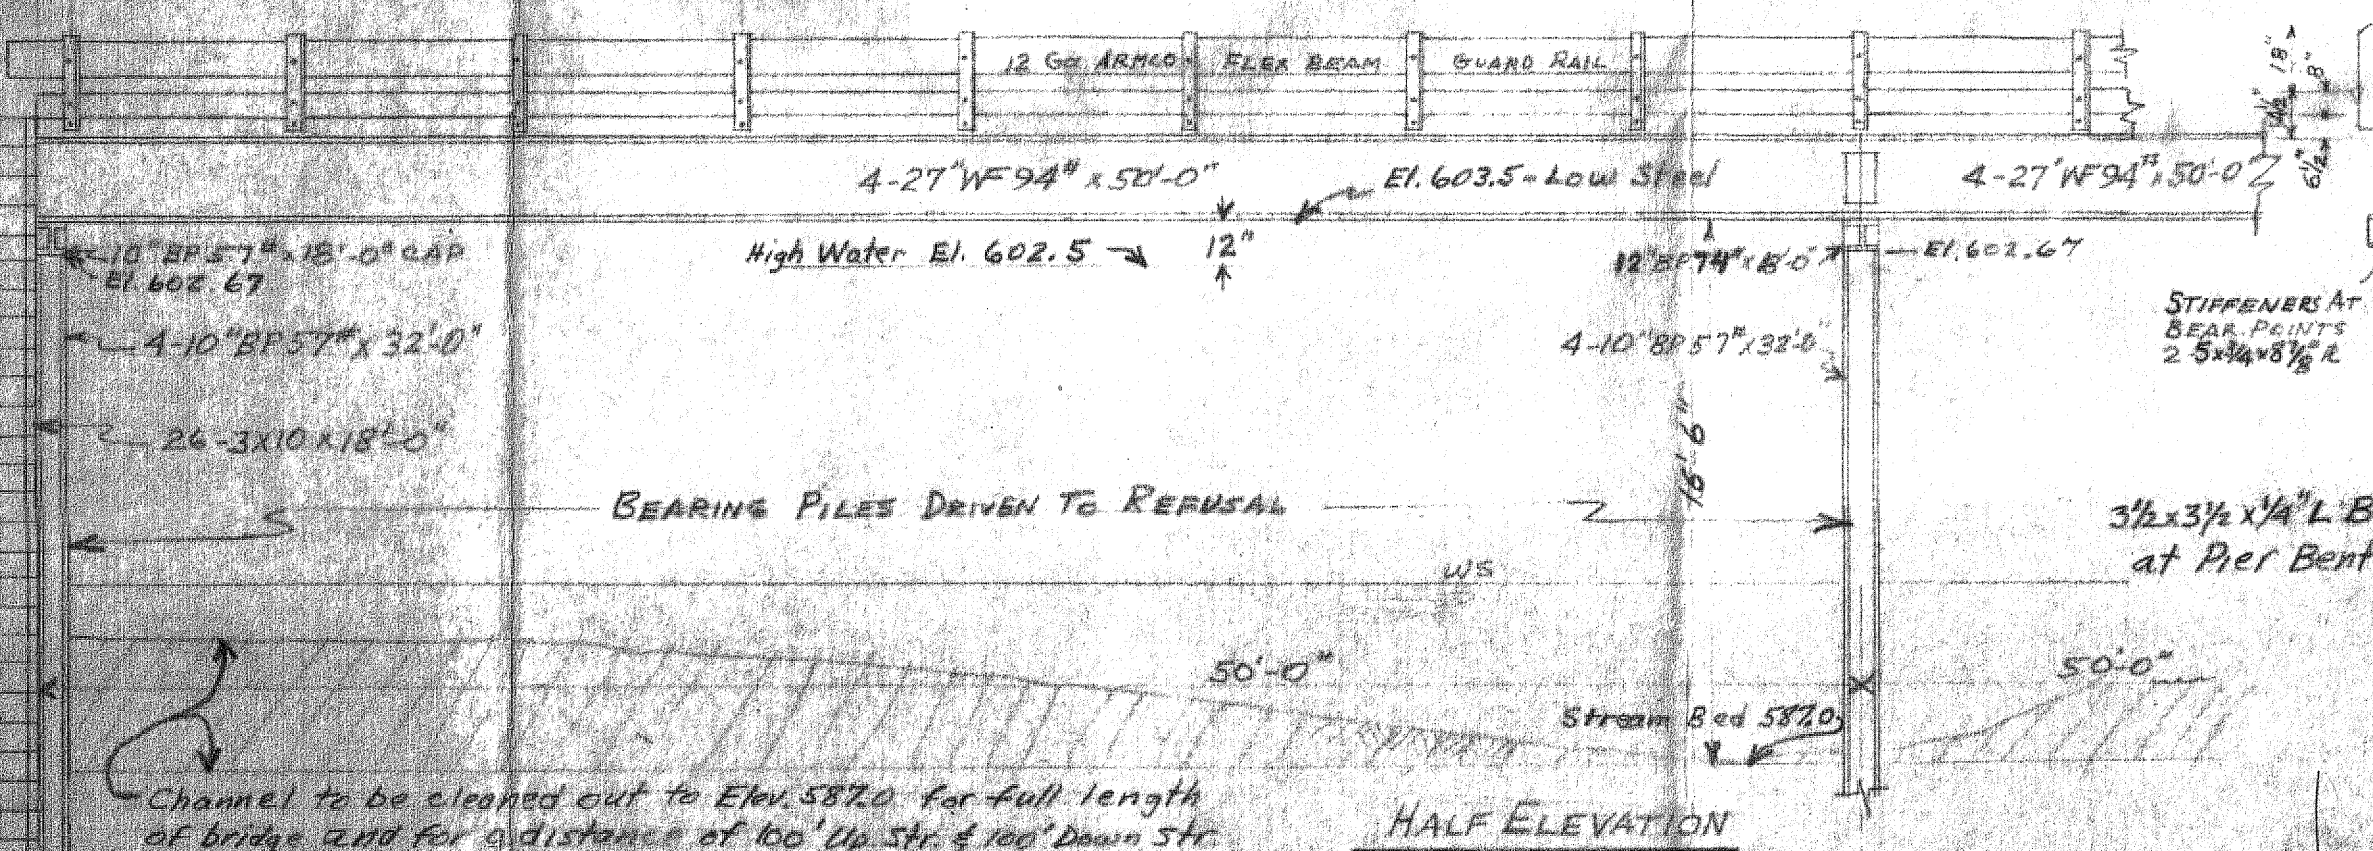 12 Ga ARMCO FLEX BEAM GUARD RAIL
18"
8"
4½"
6½"
4-27"WF 94# x 50'-0"
El. 603.5 - Low Steel
4-27"WF 94# x 50'-0"
10"BP 57# x 18'-0" CAP
El. 602.67
High Water El. 602.5
12"
12"BP 74# x 18'-0"
El. 602.67
4-10"BP 57# x 32'-0"
4-10"BP 57# x 32'-0"
STIFFENERS AT
BEAR. POINTS
2 5x¾x8⅞"
26-3x10 x 18'-0"
16'-6"
BEARING PILES DRIVEN TO REFUSAL
3½ x 3½ x ¼" L B
at Pier Bent
WS
50'-0"
50'-0"
Stream Bed 587.0
Channel to be cleaned out to Elev. 587.0 for full length
of bridge and for a distance of 100' Up Str. & 100' Down Str.
HALF ELEVATION